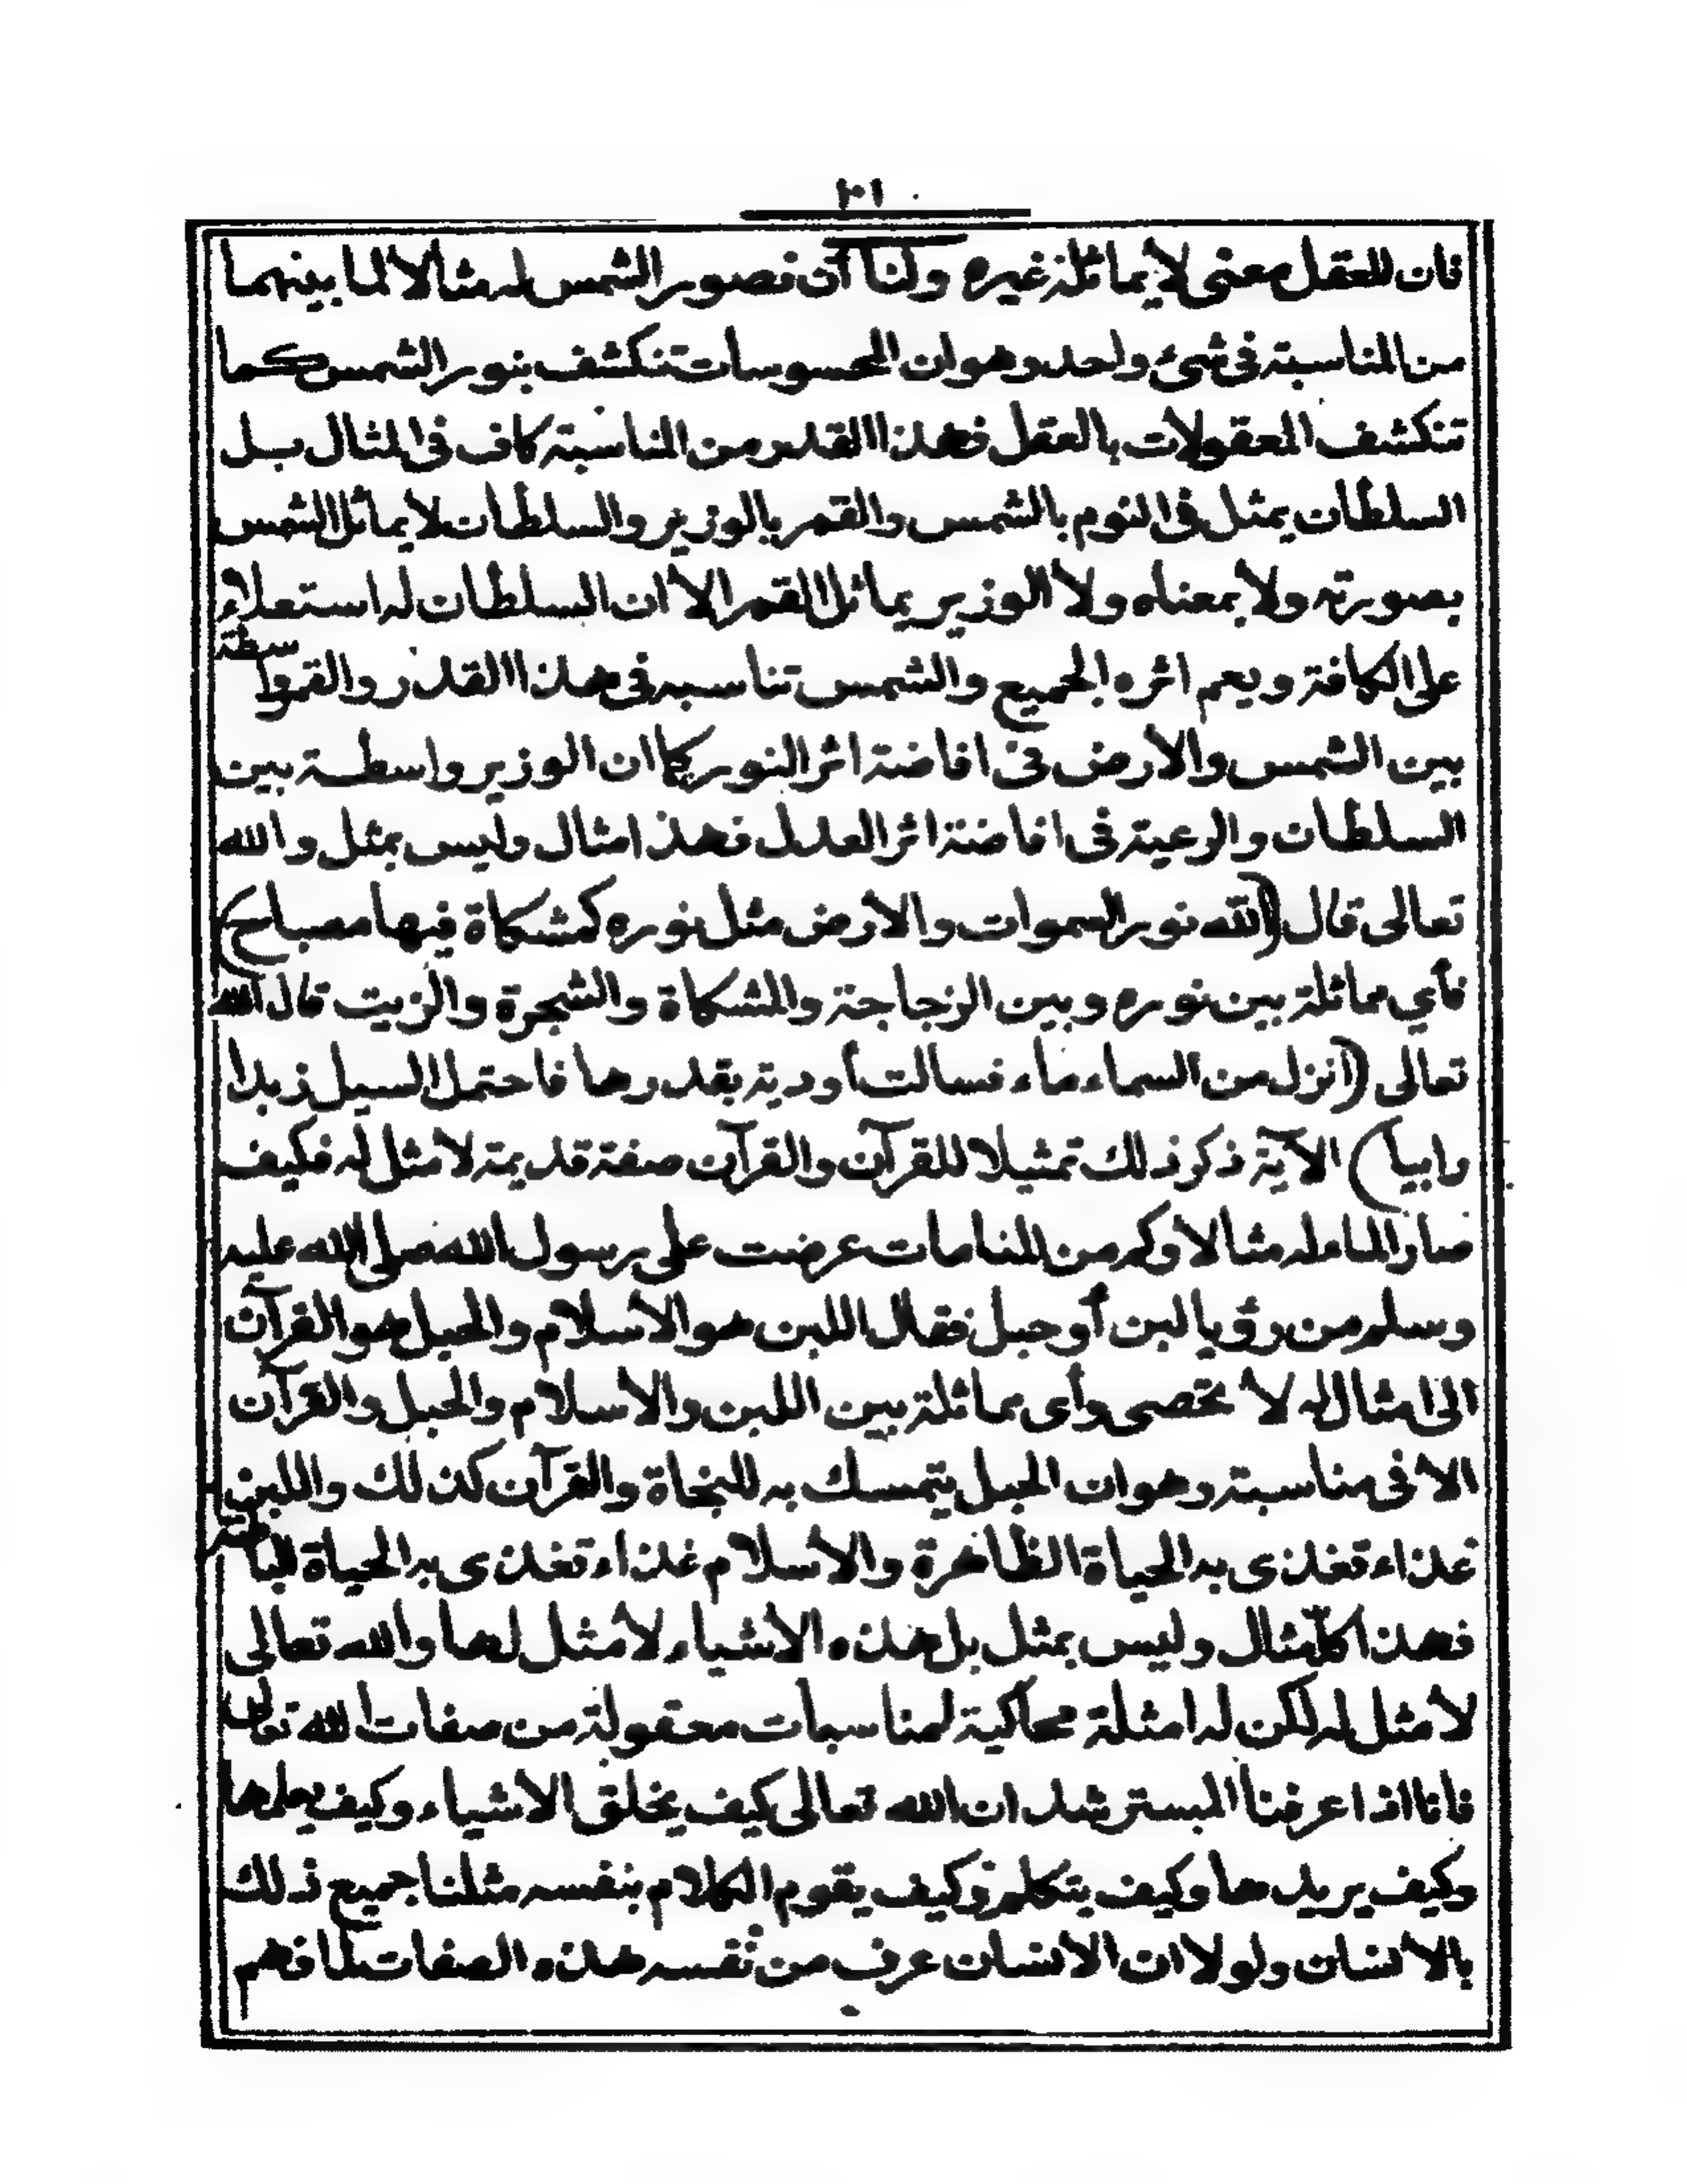 فان للعقل معنى لا يماثله غيره ولنا أن نصور الشمس له مثالا لما بينهما
من المناسبة فى شئ واحد وهو ان المحسوسات تنكشف بنور الشمس كما
تنكشف المعقولات بالعقل فهذا القدر من المناسبة كاف فى المثال بل
السلطان يمثل فى النوم بالشمس والقمر بالوزير والسلطان لا يماثل الشمس
بصورته ولا بمعناه ولا الوزير يماثل القمر الا ان السلطان له استعلاء
على الكافة ويعم اثره الجميع والشمس تناسبه فى هذا القدر والقمر واسطة
بين الشمس والأرض فى افاضة اثر النور كما ان الوزير واسطة بين
السلطان والرعية فى افاضة اثر العدل فهذا مثال وليس بمثل والله
تعالى قال (الله نور السموات والأرض مثل نوره كمشكاة فيها مصباح)
فأي مماثلة بين نوره وبين الزجاجة والمشكاة والشجرة والزيت قال الله
تعالى (انزل من السماء ماء فسالت أودية بقدرها فاحتمل السيل زبدا
رابيا) الآية ذكر ذلك تمثيلا للقرآن والقرآن صفة قديمة لا مثل له فكيف
صار الماء له مثالا وكم من المنامات عرضت على رسول الله صلى الله عليه
وسلم من رؤيا لبن أو حبل فقال اللبن هو الأسلام والحبل هو القرآن
الى امثال له لا تحصى وأى مماثلة بين اللبن والأسلام والحبل والقرآن
الا فى مناسبة وهو ان الحبل يتمسك به للنجاة والقرآن كذلك واللبن
غذاء تغذى به الحياة الظاهرة والأسلام غذاء تغذى به الحياة الباطنة
فهذا كله مثال وليس بمثل بل هذه الأشياء لا مثل لها والله تعالى
لا مثل له لكن له امثلة محاكية لمناسبات معقولة من صفات الله تعالى
فانا اذا عرفنا المسترشد ان الله تعالى كيف يخلق الأشياء وكيف يعلمها
وكيف يريدها وكيف يتكلم وكيف يقوم الكلام بنفسه مثلنا جميع ذلك
بالأنسان ولولا ان الأنسان عرف من نفسه هذه الصفات لما فهم